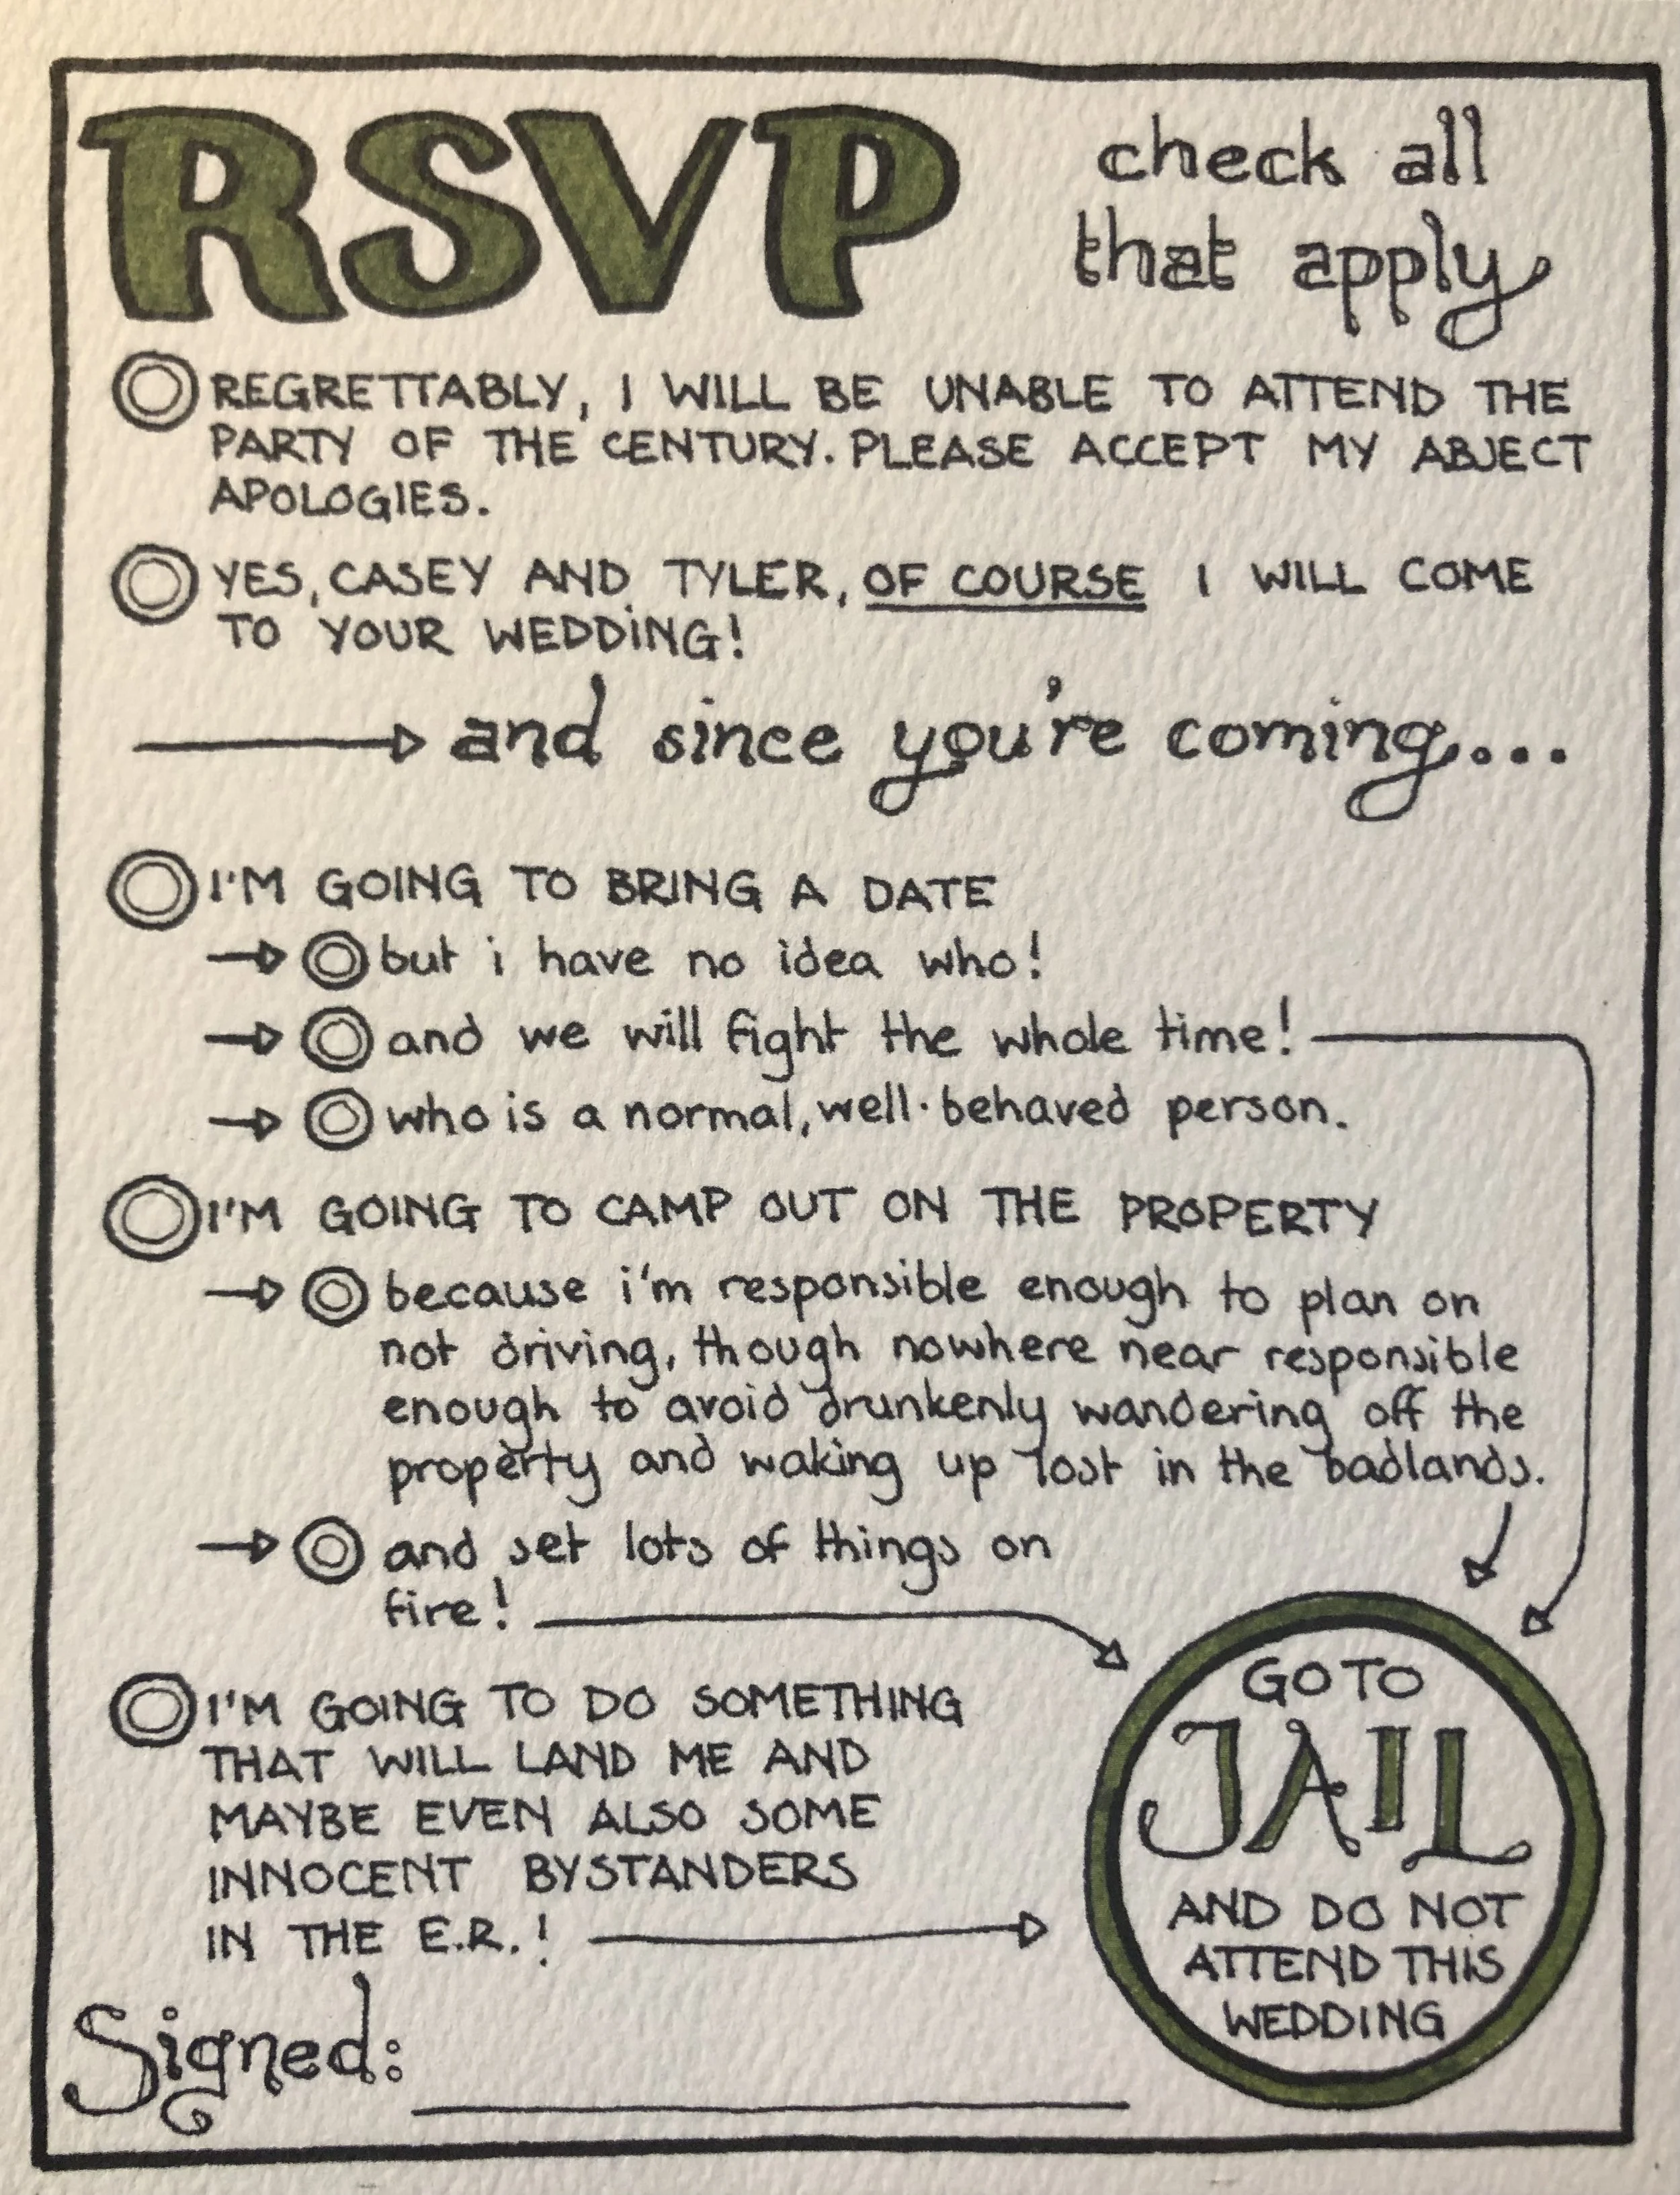 RSVP
check all
that apply
REGRETTABLY, I WILL BE UNABLE TO ATTEND THE
PARTY OF THE CENTURY. PLEASE ACCEPT MY ABJECT
APOLOGIES.
YES, CASEY AND TYLER, OF COURSE I WILL COME
TO YOUR WEDDING!
and since you're coming...
I'M GOING TO BRING A DATE
but i have no idea who!
and we will fight the whole time!
who is a normal, well-behaved person.
I'M GOING TO CAMP OUT ON THE PROPERTY
because i'm responsible enough to plan on
not driving, though nowhere near responsible
enough to avoid drunkenly wandering off the
property and waking up lost in the badlands.
and set lots of things on
fire!
I'M GOING TO DO SOMETHING
THAT WILL LAND ME AND
MAYBE EVEN ALSO SOME
INNOCENT BYSTANDERS
IN THE E.R.!
GO TO
JAIL
AND DO NOT
ATTEND THIS
WEDDING
Signed: